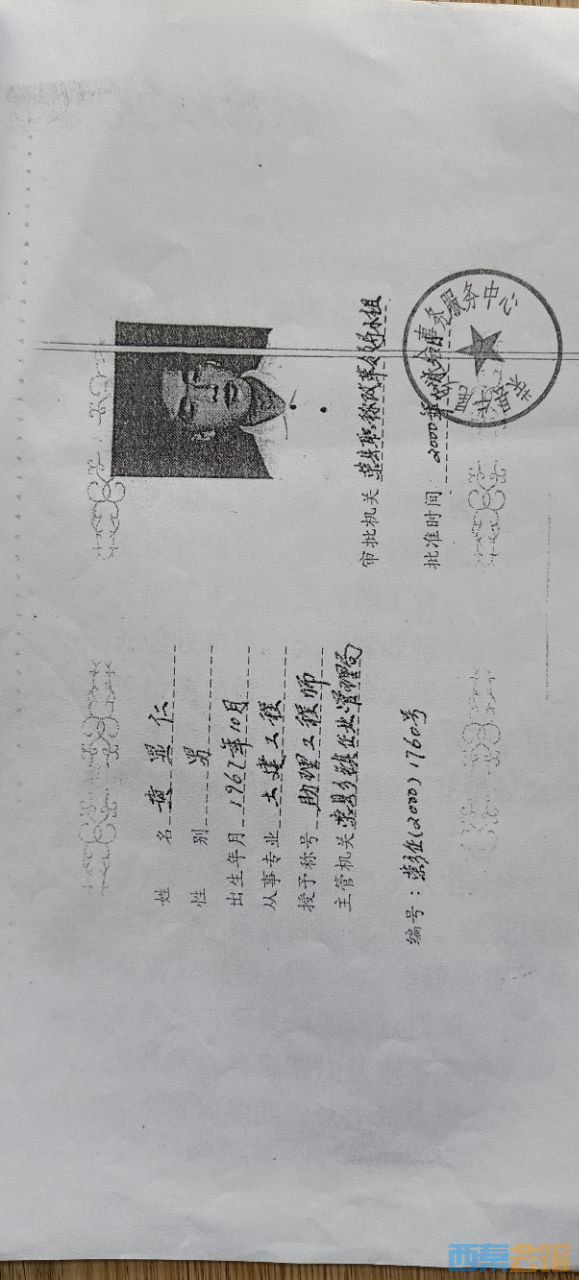 姓 名 黄显仁
性 别 男
出生年月 1967年10月
从事专业 土建工程
授予称号 助理工程师
主管机关 荣县乡镇企业管理局
编号：荣乡企(2000)1760号
审批机关 荣县职称改革领导小组
批准时间： 2000年
事务服务中心